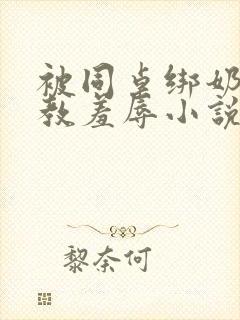 被同桌绑奶
教羞辱小說
黎奈何